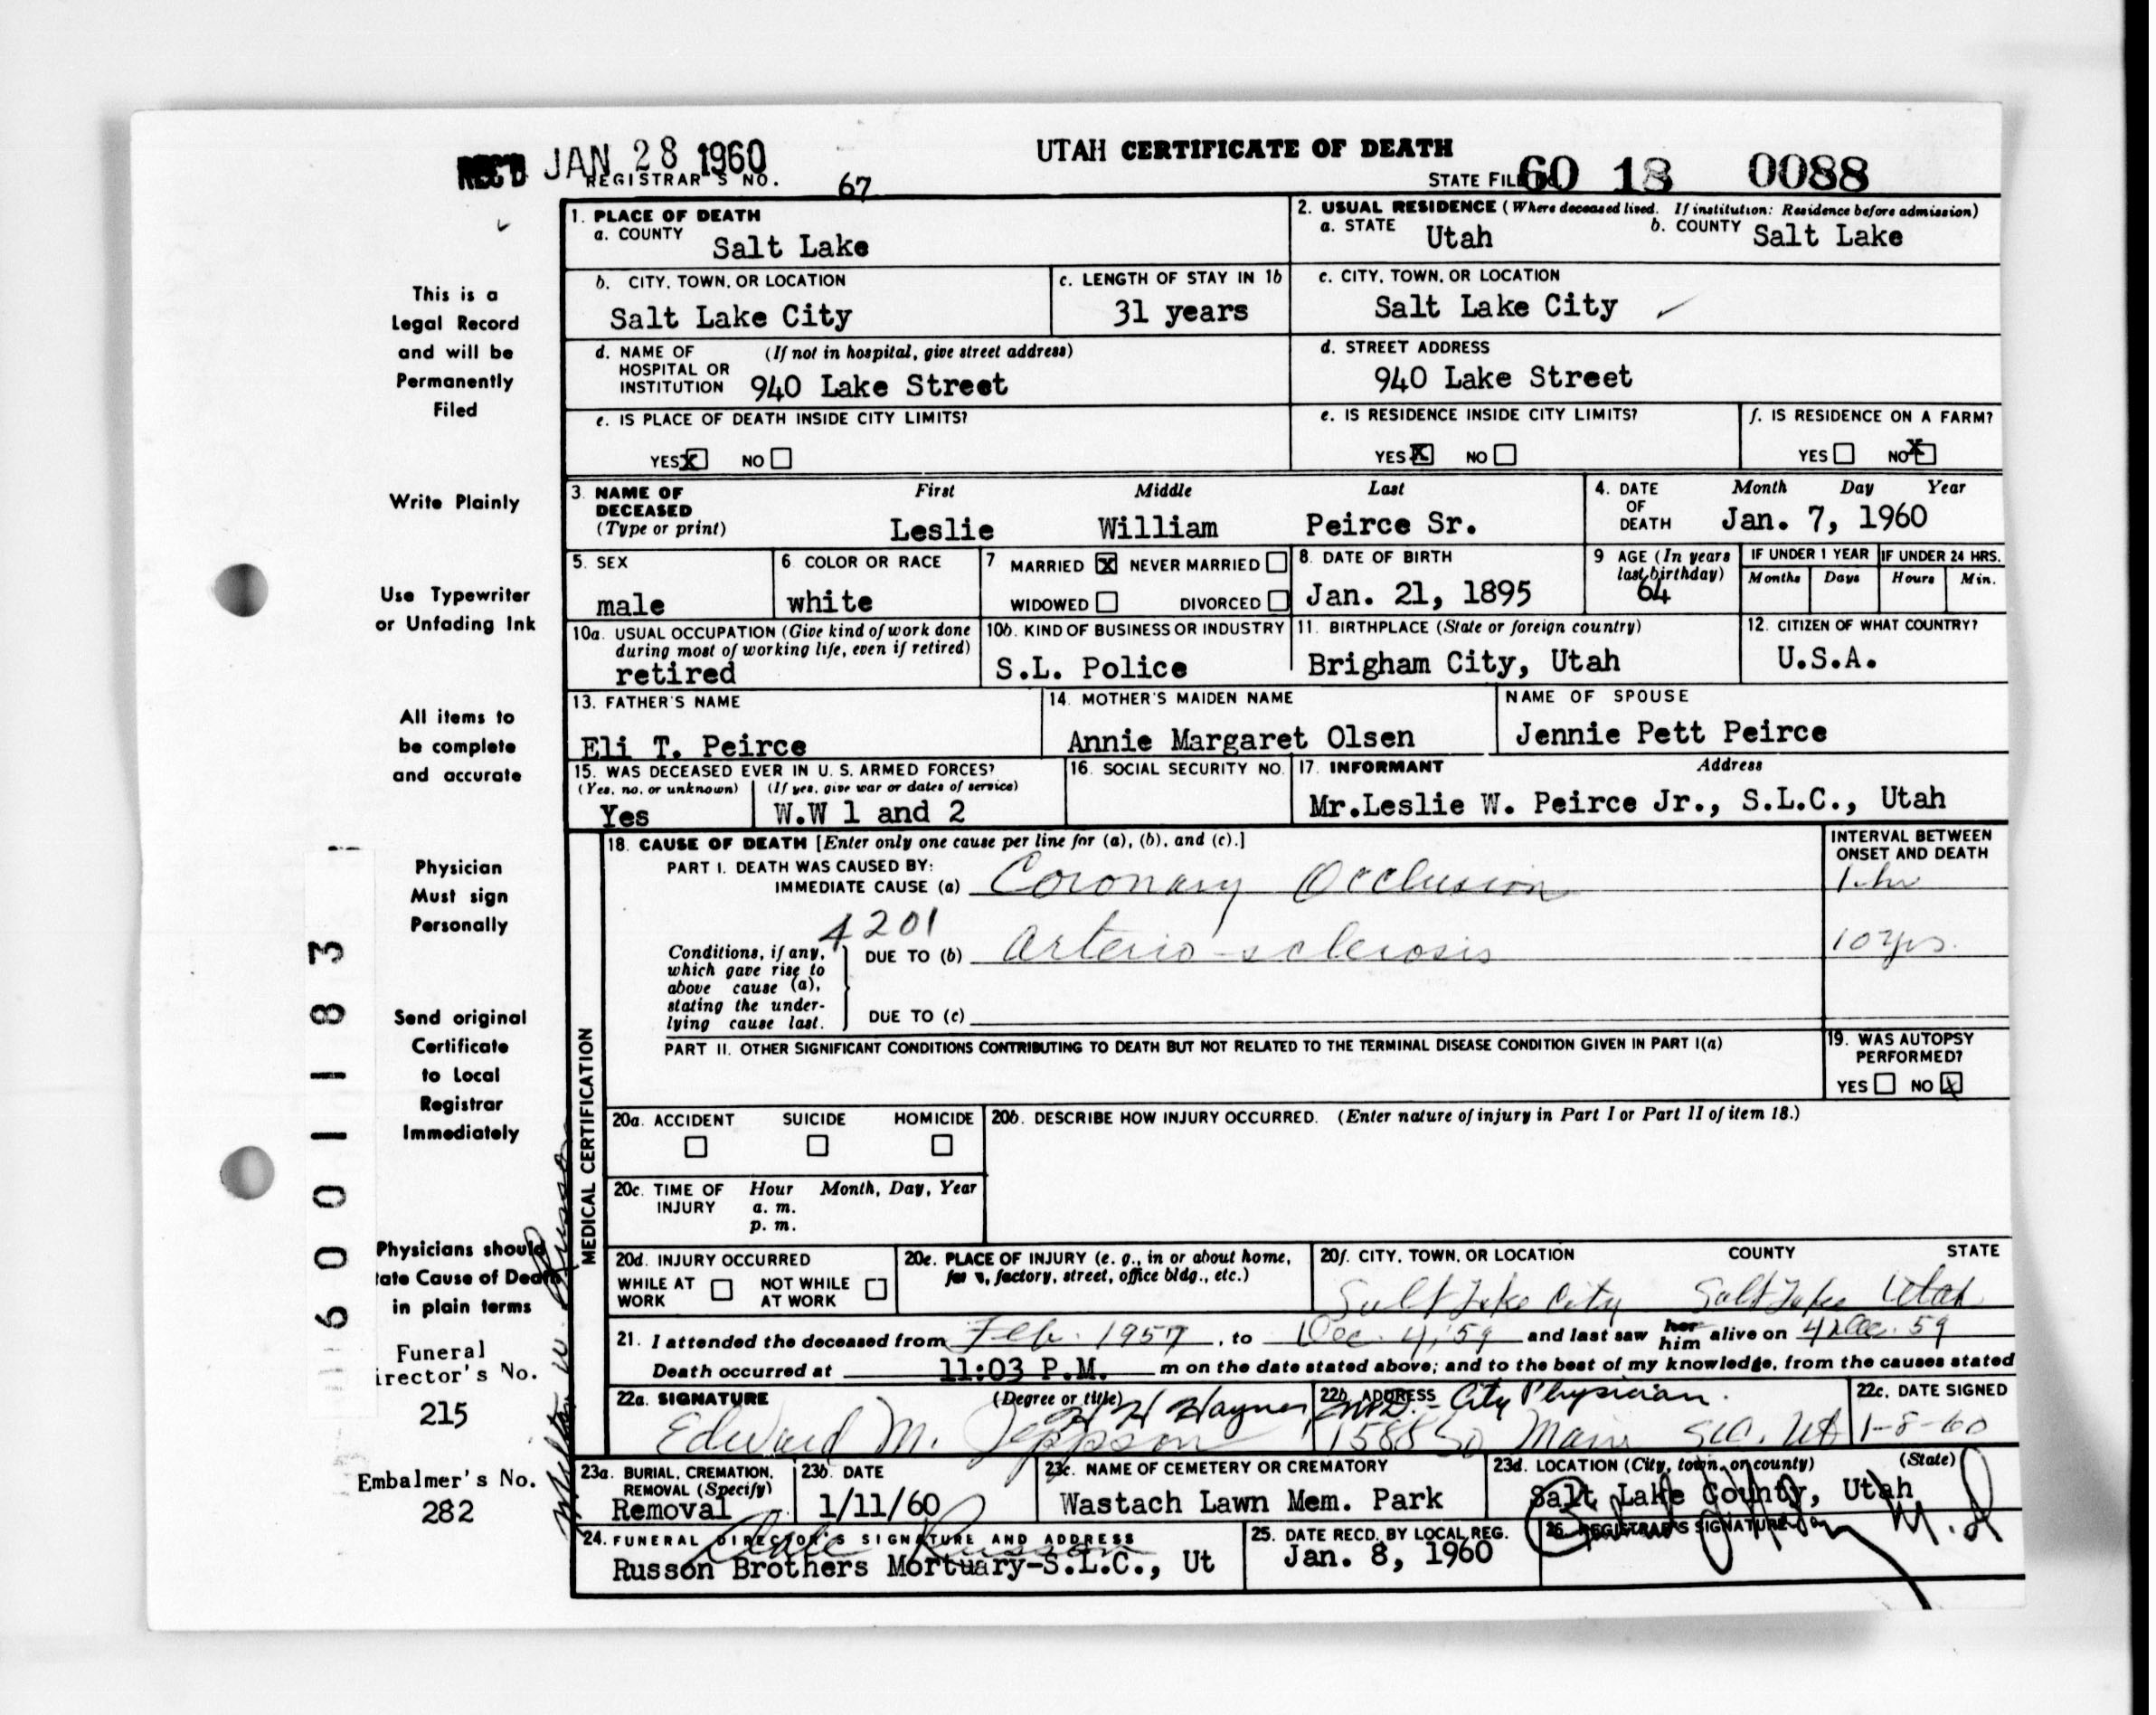 REC'D JAN 28 1960
REGISTRAR'S NO. 67
UTAH CERTIFICATE OF DEATH
STATE FILE 60 18 0088
This is a
Legal Record
and will be
Permanently
Filed
Write Plainly
Use Typewriter
or Unfading Ink
All items to
be complete
and accurate
Physician
Must sign
Personally
Send original
Certificate
to Local
Registrar
Immediately
Physicians should
tate Cause of Death
in plain terms
Funeral
irector's No.
215
Embalmer's No.
282
6001183
1. PLACE OF DEATH
a. COUNTY Salt Lake
2. USUAL RESIDENCE (Where deceased lived. If institution: Residence before admission)
a. STATE Utah b. COUNTY Salt Lake
b. CITY, TOWN, OR LOCATION
Salt Lake City
c. LENGTH OF STAY IN 1b
31 years
c. CITY, TOWN, OR LOCATION
Salt Lake City
d. NAME OF (If not in hospital, give street address)
HOSPITAL OR
INSTITUTION 940 Lake Street
d. STREET ADDRESS
940 Lake Street
e. IS PLACE OF DEATH INSIDE CITY LIMITS?
YES X NO
e. IS RESIDENCE INSIDE CITY LIMITS?
YES X NO
f. IS RESIDENCE ON A FARM?
YES NO X
3. NAME OF DECEASED (Type or print)
First Middle Last
Leslie William Peirce Sr.
4. DATE OF DEATH
Month Day Year
Jan. 7, 1960
5. SEX
male
6. COLOR OR RACE
white
7 MARRIED X NEVER MARRIED
WIDOWED DIVORCED
8. DATE OF BIRTH
Jan. 21, 1895
9 AGE (In years last birthday)
64
IF UNDER 1 YEAR IF UNDER 24 HRS.
Months Days Hours Min.
10a. USUAL OCCUPATION (Give kind of work done
during most of working life, even if retired)
retired
10b. KIND OF BUSINESS OR INDUSTRY
S.L. Police
11. BIRTHPLACE (State or foreign country)
Brigham City, Utah
12. CITIZEN OF WHAT COUNTRY?
U.S.A.
13. FATHER'S NAME
Eli T. Peirce
14. MOTHER'S MAIDEN NAME
Annie Margaret Olsen
NAME OF SPOUSE
Jennie Pett Peirce
15. WAS DECEASED EVER IN U. S. ARMED FORCES?
(Yes, no, or unknown) (If yes, give war or dates of service)
Yes W.W 1 and 2
16. SOCIAL SECURITY NO.
17. INFORMANT Address
Mr.Leslie W. Peirce Jr., S.L.C., Utah
MEDICAL CERTIFICATION
18. CAUSE OF DEATH [Enter only one cause per line for (a), (b), and (c).]
INTERVAL BETWEEN
ONSET AND DEATH
PART I. DEATH WAS CAUSED BY:
IMMEDIATE CAUSE (a) Coronary Occlusion 1 hr
4201
Conditions, if any,
which gave rise to
above cause (a),
stating the under-
lying cause last.
DUE TO (b) Arterio-sclerosis 10 yrs.
DUE TO (c)
PART II. OTHER SIGNIFICANT CONDITIONS CONTRIBUTING TO DEATH BUT NOT RELATED TO THE TERMINAL DISEASE CONDITION GIVEN IN PART I(a)
19. WAS AUTOPSY
PERFORMED?
YES NO X
20a. ACCIDENT SUICIDE HOMICIDE
20b. DESCRIBE HOW INJURY OCCURRED. (Enter nature of injury in Part I or Part II of item 18.)
20c. TIME OF INJURY
Hour Month, Day, Year
a. m.
p. m.
20d. INJURY OCCURRED
WHILE AT WORK NOT WHILE AT WORK
20e. PLACE OF INJURY (e. g., in or about home,
factory, street, office bldg., etc.)
20f. CITY, TOWN, OR LOCATION COUNTY STATE
Salt Lake City Salt Lake Utah
21. I attended the deceased from Feb. 1957, to Dec. 4, 59 and last saw her him alive on 4 Dec. 59
Death occurred at 11:03 P.M. m on the date stated above; and to the best of my knowledge, from the causes stated
22a. SIGNATURE (Degree or title)
Edward M. Jeppson
22b. ADDRESS City Physician.
1588 So Main S.L.C. Ut
22c. DATE SIGNED
1-8-60
23a. BURIAL, CREMATION,
REMOVAL (Specify)
Removal
23b. DATE
1/11/60
23c. NAME OF CEMETERY OR CREMATORY
Wastach Lawn Mem. Park
23d. LOCATION (City, town, or county) (State)
Salt Lake County, Utah
24. FUNERAL DIRECTOR'S SIGNATURE AND ADDRESS
Russon Brothers Mortuary-S.L.C., Ut
25. DATE RECD. BY LOCAL REG.
Jan. 8, 1960
26. REGISTRAR'S SIGNATURE